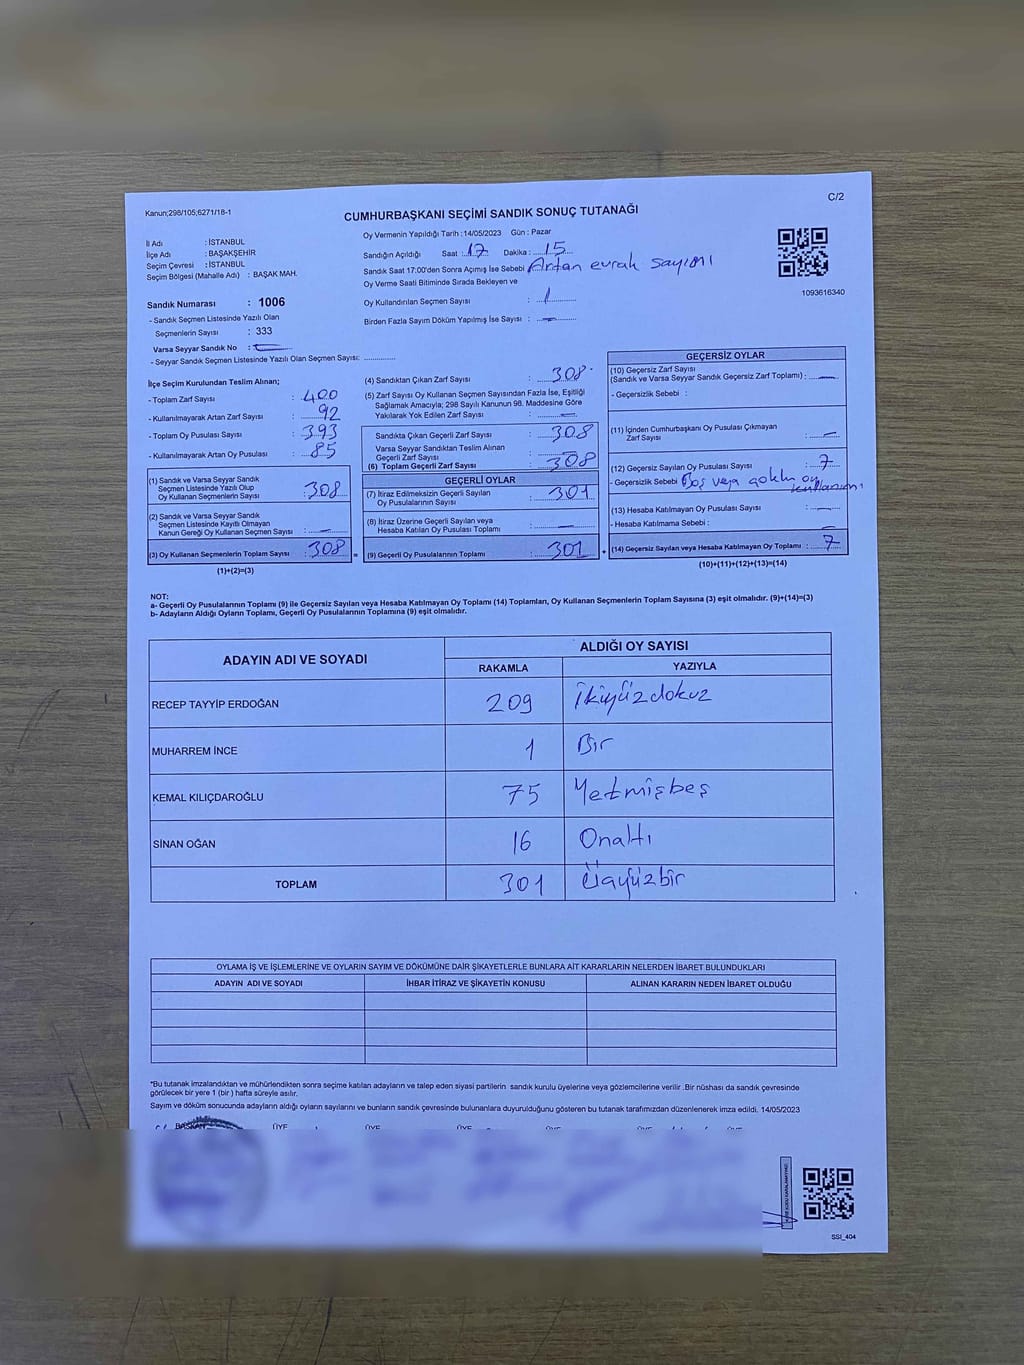 Kanun;298/105;6271/18-1
C/2
CUMHURBAŞKANI SEÇİMİ SANDIK SONUÇ TUTANAĞI
İl Adı : İSTANBUL
İlçe Adı : BAŞAKŞEHİR
Seçim Çevresi : İSTANBUL
Seçim Bölgesi (Mahalle Adı) : BAŞAK MAH.
Sandık Numarası : 1006
- Sandık Seçmen Listesinde Yazılı Olan
Seçmenlerin Sayısı : 333
Varsa Seyyar Sandık No :
- Seyyar Sandık Seçmen Listesinde Yazılı Olan Seçmen Sayısı: ............
Oy Vermenin Yapıldığı Tarih :14/05/2023 Gün : Pazar
Sandığın Açıldığı Saat : 17 Dakika : 15
Sandık Saat 17:00'den Sonra Açımış İse Sebebi Artan evrak sayımı
Oy Verme Saati Bitiminde Sırada Bekleyen ve
Oy Kullandırılan Seçmen Sayısı : 1
Birden Fazla Sayım Döküm Yapılmış İse Sayısı : —
1093616340
İlçe Seçim Kurulundan Teslim Alınan;
- Toplam Zarf Sayısı : 400
- Kullanılmayarak Artan Zarf Sayısı : 92
- Toplam Oy Pusulası Sayısı : 393
- Kullanılmayarak Artan Oy Pusulası : 85
(1) Sandık ve Varsa Seyyar Sandık
Seçmen Listesinde Yazılı Olup
Oy Kullanan Seçmenlerin Sayısı : 308
(2) Sandık ve Varsa Seyyar Sandık
Seçmen Listesinde Kayıtlı Olmayan
Kanun Gereği Oy Kullanan Seçmen Sayısı : —
(3) Oy Kullanan Seçmenlerin Toplam Sayısı : 308 =
(1)+(2)=(3)
(4) Sandıktan Çıkan Zarf Sayısı : 308
(5) Zarf Sayısı Oy Kullanan Seçmen Sayısından Fazla İse, Eşitliği
Sağlamak Amacıyla; 298 Sayılı Kanunun 98. Maddesine Göre
Yakılarak Yok Edilen Zarf Sayısı : —
Sandıkta Çıkan Geçerli Zarf Sayısı : 308
Varsa Seyyar Sandıktan Teslim Alınan
Geçerli Zarf Sayısı : —
(6) Toplam Geçerli Zarf Sayısı : 308
GEÇERLİ OYLAR
(7) İtiraz Edilmeksizin Geçerli Sayılan
Oy Pusulalarının Sayısı : 301
(8) İtiraz Üzerine Geçerli Sayılan veya
Hesaba Katılan Oy Pusulası Toplamı : —
(9) Geçerli Oy Pusulalarının Toplamı : 301 +
GEÇERSİZ OYLAR
(10) Geçersiz Zarf Sayısı
(Sandık ve Varsa Seyyar Sandık Geçersiz Zarf Toplamı) : —
- Geçersizlik Sebebi :
(11) İçinden Cumhurbaşkanı Oy Pusulası Çıkmayan
Zarf Sayısı : —
(12) Geçersiz Sayılan Oy Pusulası Sayısı : 7
- Geçersizlik Sebebi Boş veya çoklu oy
kullanımı
(13) Hesaba Katılmayan Oy Pusulası Sayısı : —
- Hesaba Katılmama Sebebi : —
(14) Geçersiz Sayılan veya Hesaba Katılmayan Oy Toplamı : 7
(10)+(11)+(12)+(13)=(14)
NOT:
a- Geçerli Oy Pusulalarının Toplamı (9) ile Geçersiz Sayılan veya Hesaba Katılmayan Oy Toplamı (14) Toplamları, Oy Kullanan Seçmenlerin Toplam Sayısına (3) eşit olmalıdır. (9)+(14)=(3)
b- Adayların Aldığı Oyların Toplamı, Geçerli Oy Pusulalarının Toplamına (9) eşit olmalıdır.
ADAYIN ADI VE SOYADI ALDIĞI OY SAYISI
RAKAMLA YAZIYLA
RECEP TAYYİP ERDOĞAN 209 İkiyüzdokuz
MUHARREM İNCE 1 Bir
KEMAL KILIÇDAROĞLU 75 Yetmişbeş
SİNAN OĞAN 16 Onaltı
TOPLAM 301 Üçyüzbir
OYLAMA İŞ VE İŞLEMLERİNE VE OYLARIN SAYIM VE DÖKÜMÜNE DAİR ŞİKAYETLERLE BUNLARA AİT KARARLARIN NELERDEN İBARET BULUNDUKLARI
ADAYIN ADI VE SOYADI İHBAR İTİRAZ VE ŞİKAYETİN KONUSU ALINAN KARARIN NEDEN İBARET OLDUĞU
*Bu tutanak imzalandıktan ve mühürlendikten sonra seçime katılan adayların ve talep eden siyasi partilerin sandık kurulu üyelerine veya gözlemcilerine verilir .Bir nüshası da sandık çevresinde
görülecek bir yere 1 (bir ) hafta süreyle asılır.
Sayım ve döküm sonucunda adayların aldığı oyların sayılarını ve bunların sandık çevresinde bulunanlara duyurulduğunu gösteren bu tutanak tarafımızdan düzenlenerek imza edildi. 14/05/2023
BAŞKAN ÜYE ÜYE ÜYE ÜYE ÜYE ÜYE
SSI_404